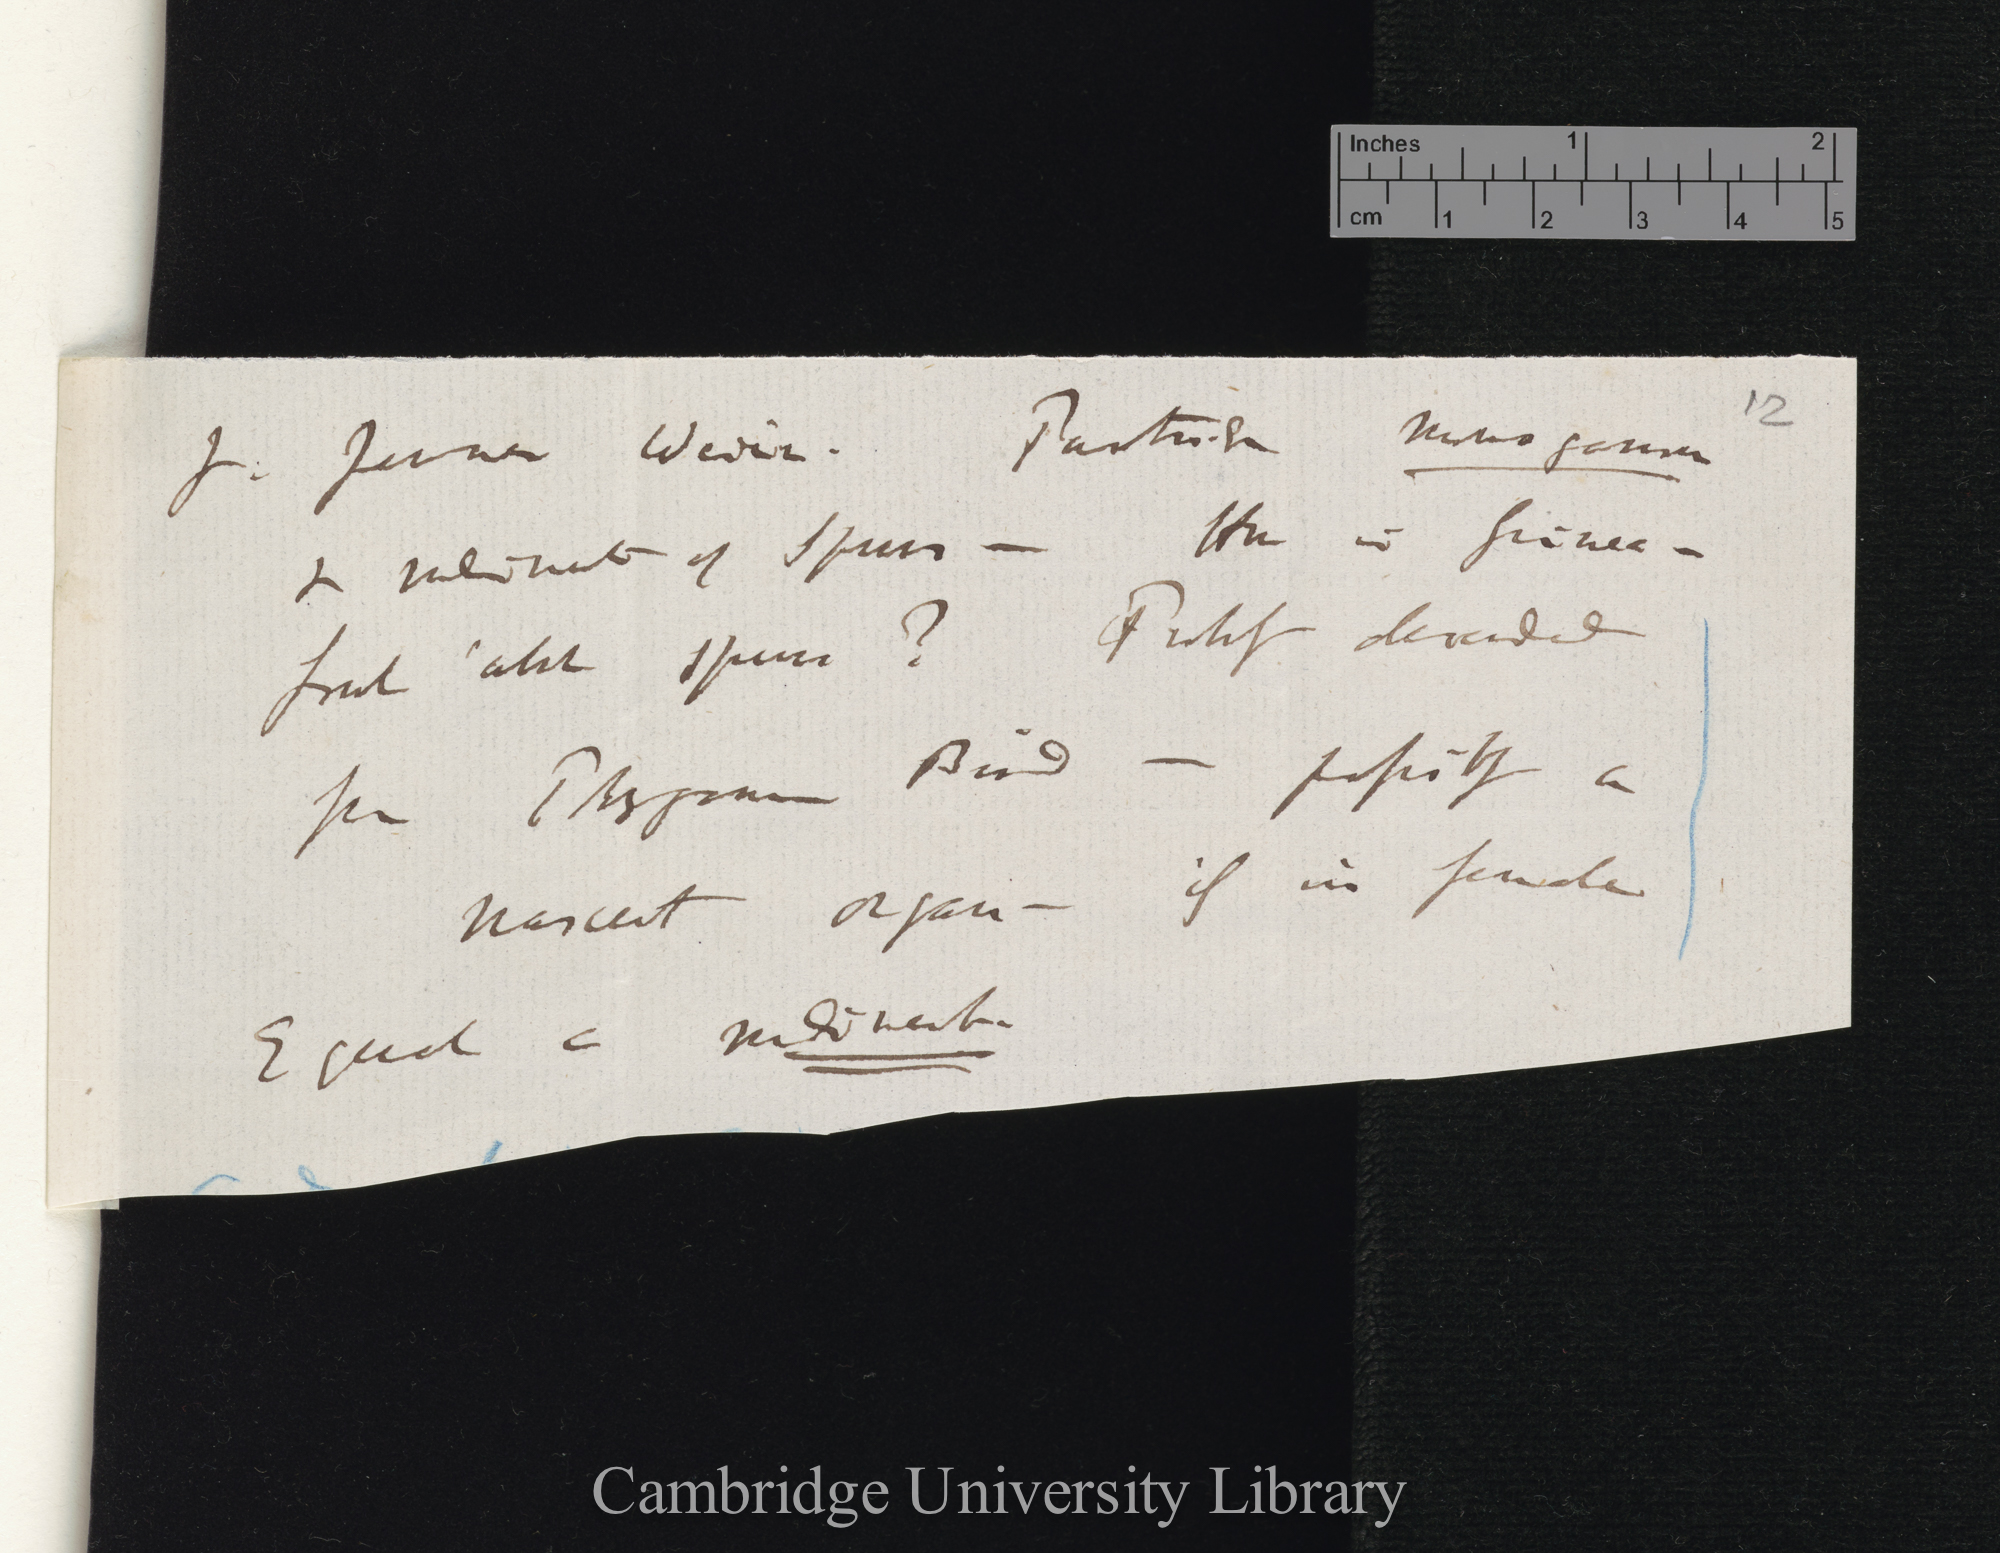 Inches 1 2
cm 1 2 3 4 5
12
J. Jenner Weir. Partridge monogamous
& rudiment of spurs — How is Guinea-
fowl about spurs? Probably descended
from Polygamous Bird — possibly a
nascent organ — if in female
Equal a rudiment.
Cambridge University Library